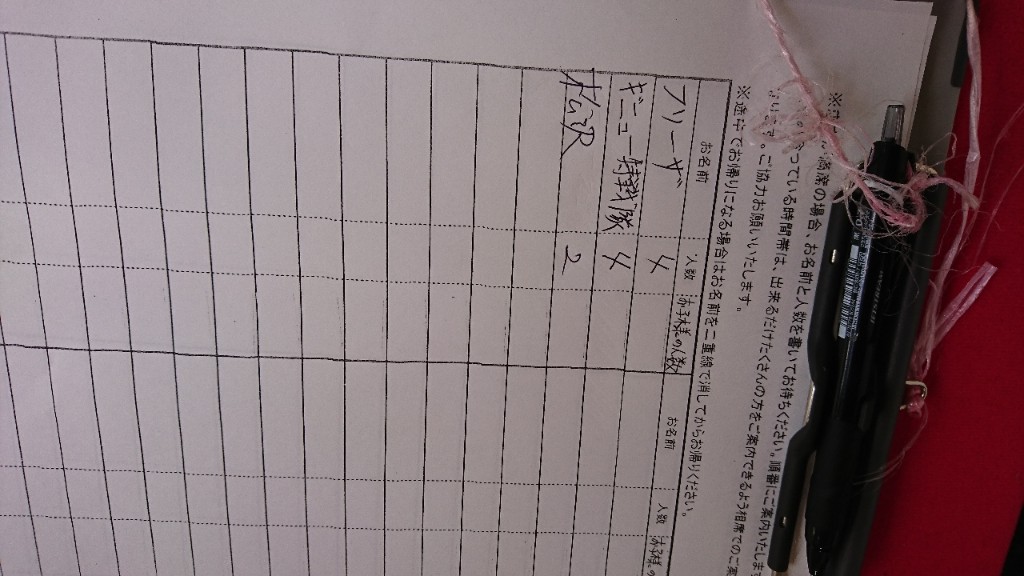 満席の場合、お名前と人数を書いてお待ちください。順番にご案内いたします
っている時間帯は、出来るだけたくさんの方をご案内できるよう相席でのご案
なります。ご協力お願いいたします。
※途中でお帰りになる場合はお名前を二重線で消してからお帰りください。
お名前 人数 お子様の人数 お名前 人数 お子様の
フリーザ 4
ギニュー特戦隊 4
松沢 2